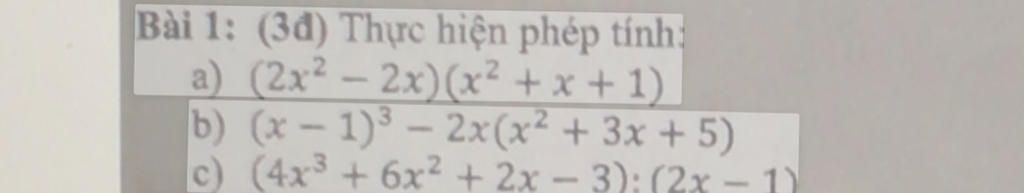 Bài 1: (3đ) Thực hiện phép tính:
a) (2x² − 2x)(x² + x + 1)
b) (x − 1)³ − 2x(x² + 3x + 5)
c) (4x³ + 6x² + 2x − 3): (2x − 1)